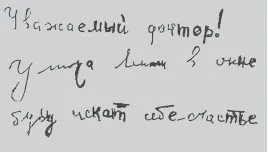 Уважаемый доктор!
У в окне
буду искат себе счастье